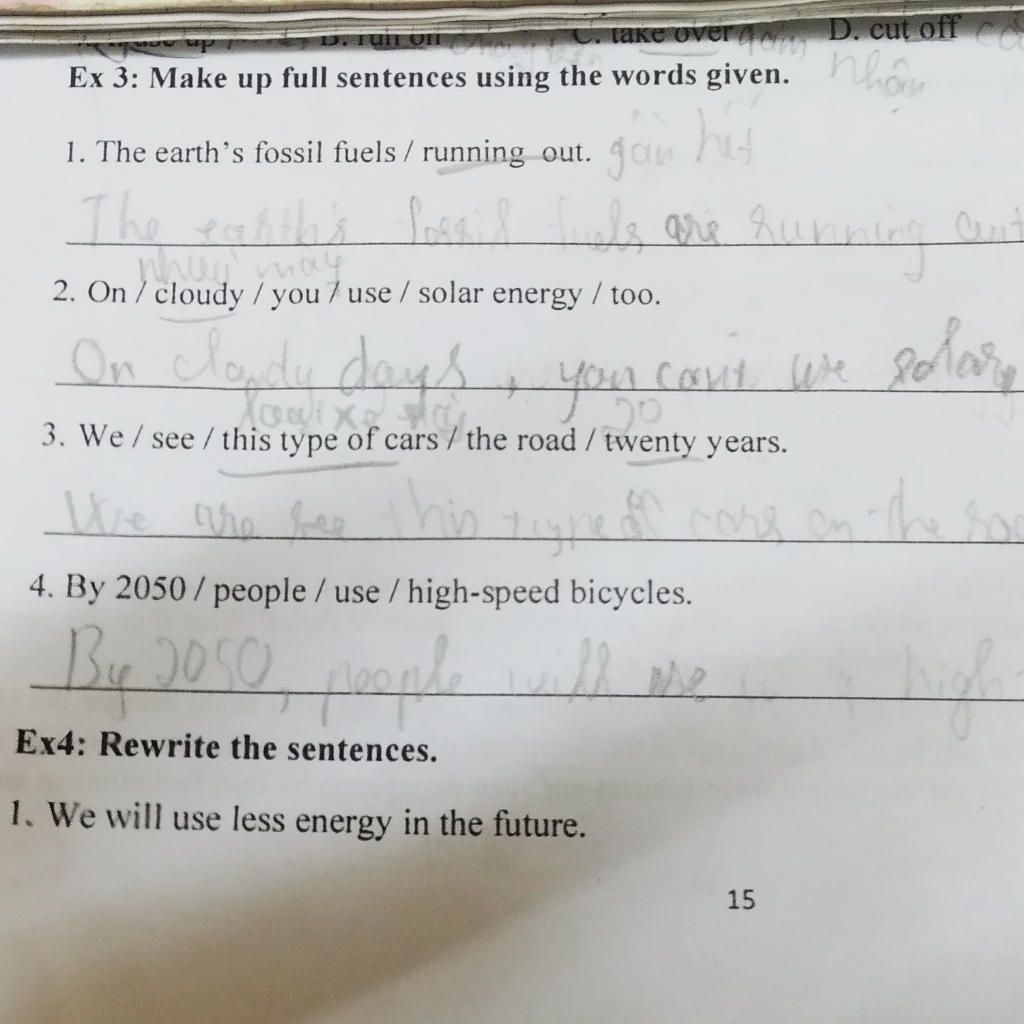 B. run on C. take over D. cut off
nhận
Ex 3: Make up full sentences using the words given.
1. The earth's fossil fuels / running out. gần hết
The earth's fossil fuels are running out
nhuy may
2. On / cloudy / you / use / solar energy / too.
On cloudy days, you can't use solar
loại xe 20
3. We / see / this type of cars / the road / twenty years.
We are see this type of cars on the
4. By 2050 / people / use / high-speed bicycles.
By 2050, people will use high-
Ex4: Rewrite the sentences.
1. We will use less energy in the future.
15